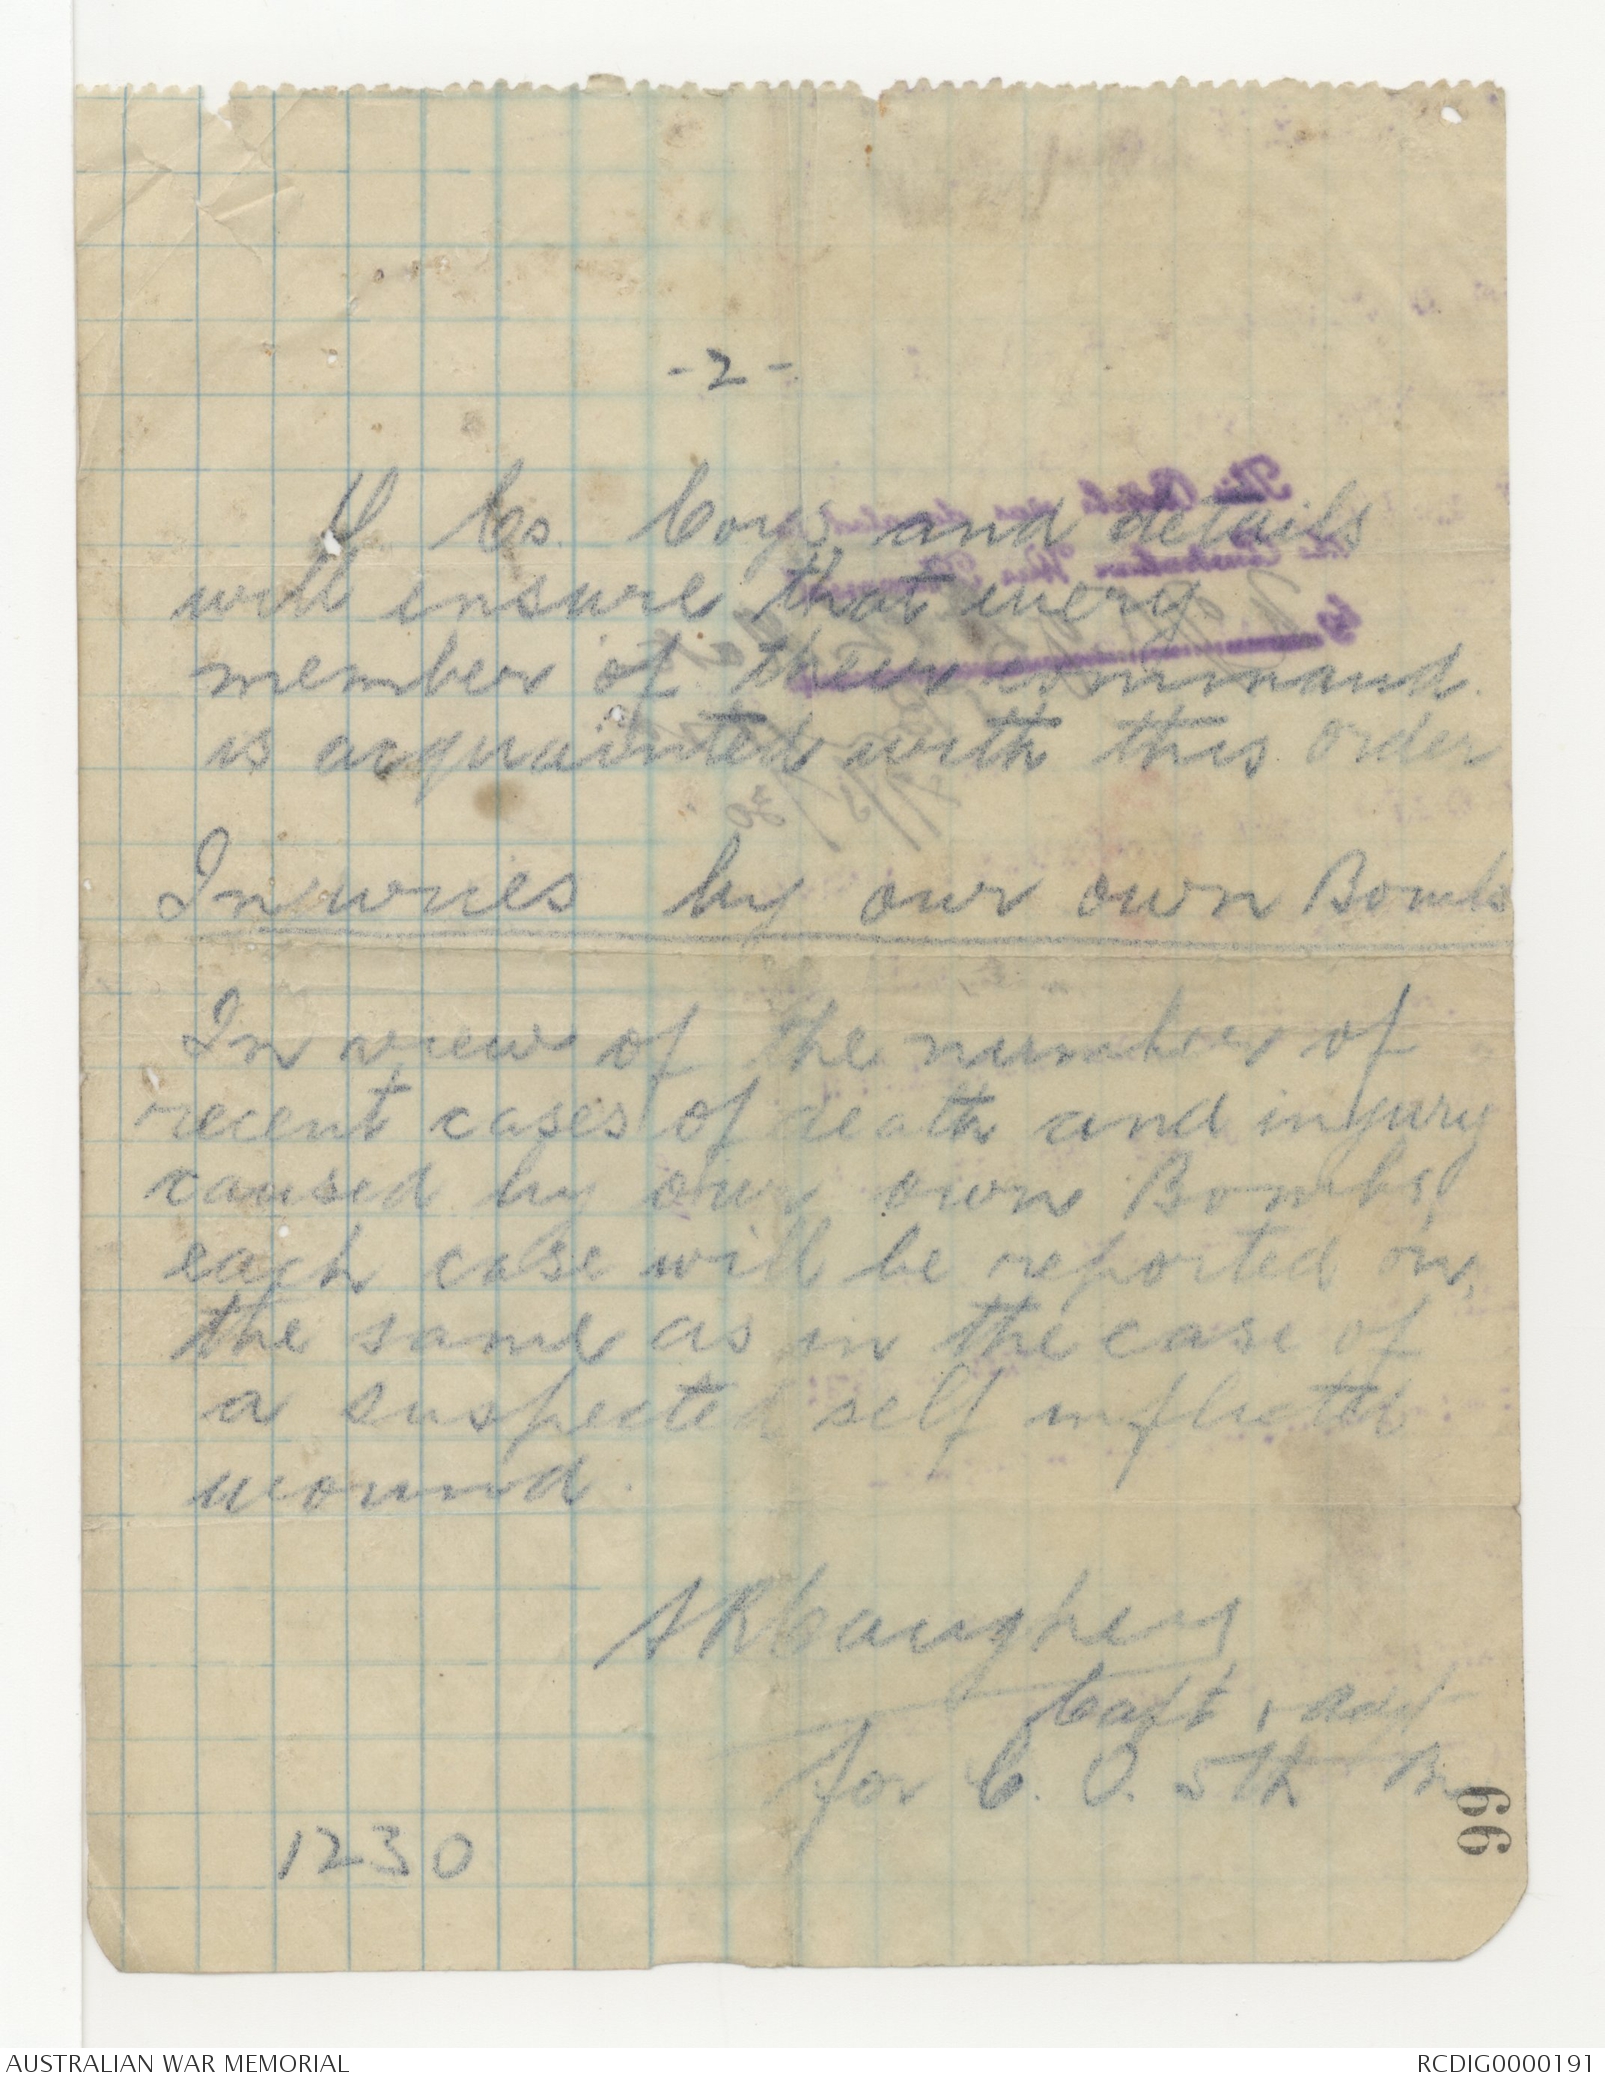 - 2 -
O. Cs. Coys and details
will ensure that every
member of their command
is acquainted with this order
Injuries by our own Bombs
In view of the number of
recent cases of death and injury
caused by our own Bombs,
each case will be reported on,
the same as in the case of
a suspected self inflicted
wound.
ARCaughey
Capt. & Adjt
for C. O. 5th Bn
1230
66
AUSTRALIAN WAR MEMORIAL
RCDIG0000191